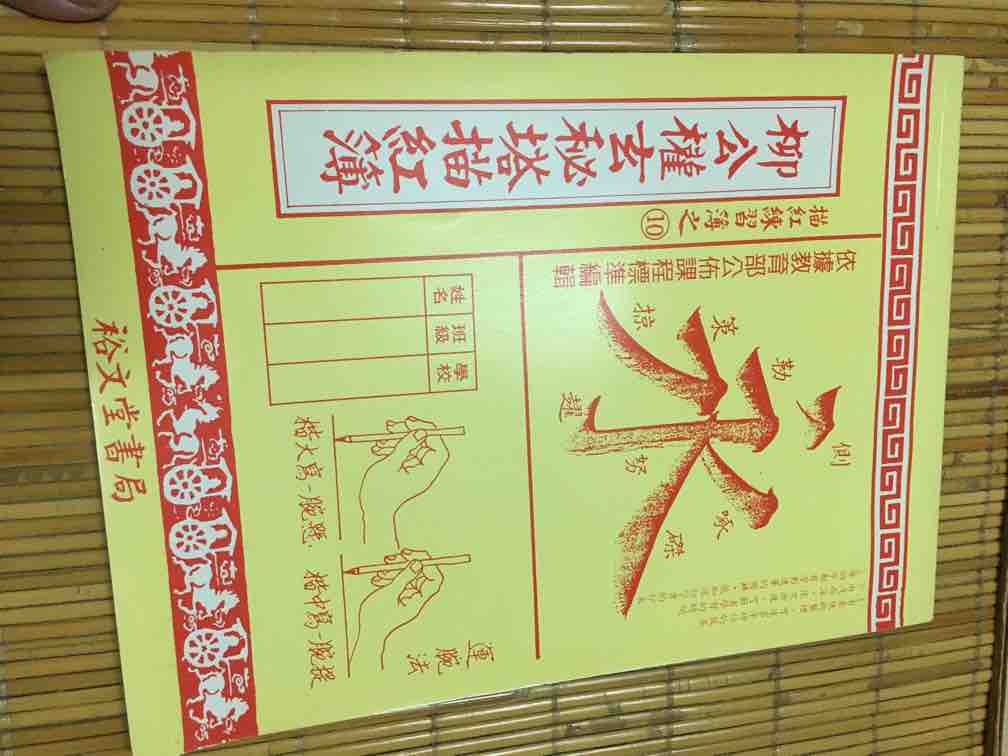 柳公權玄秘塔描紅簿
描紅練習簿之⑩
依據教育部公佈課程標準編輯
側
勒
策
掠
啄
磔
努
趯
學校
班級
姓名
運腕法
提腕-寫中楷
懸腕-寫大楷
裕文堂書局